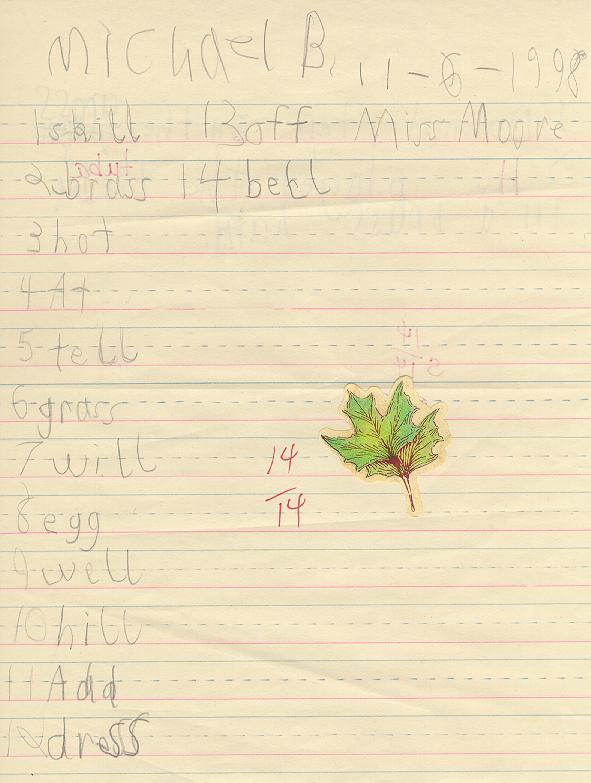 Michael B. 11-6-1998
1 skill 13 off Miss Moore
2 brass 14 bell
3 hot
4 At
5 tell
6 grass
7 will
14
14
8 egg
9 well
10 hill
11 Add
12 dress